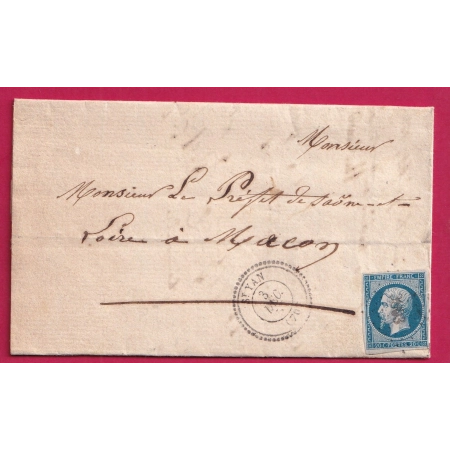 Monsieur
Monsieur Le Préfet de Saône-et-
Loire à Macon
ST YAN
3
DEC.
(70)
EMPIRE FRANC.
20 C. POSTES 20 C.